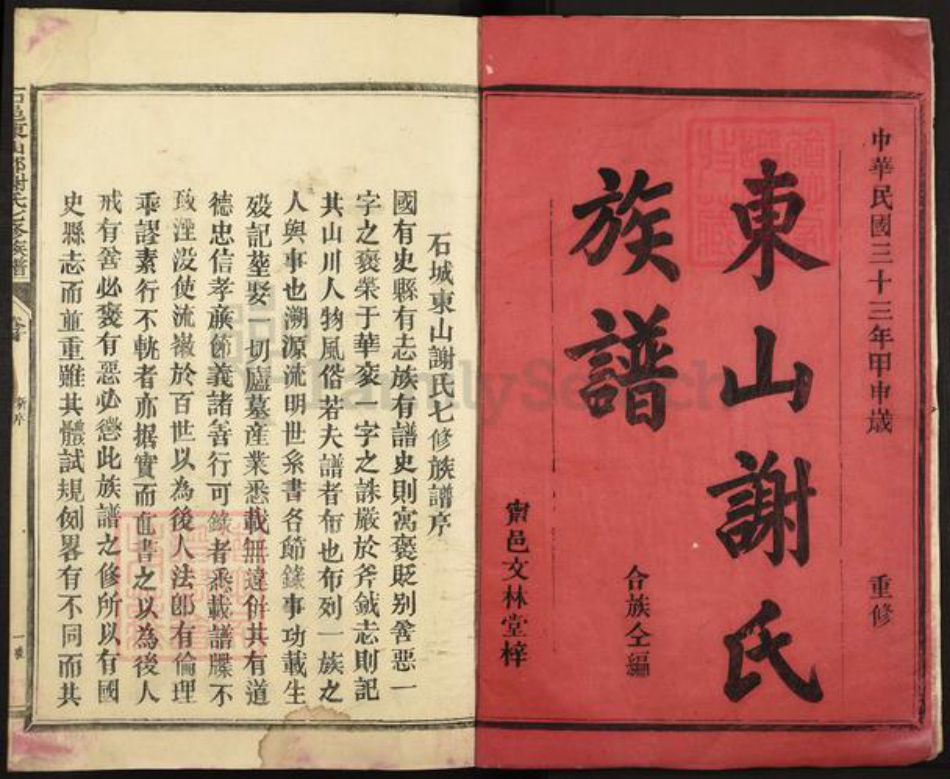 中華民國三十三年甲申歲 重修
東山謝氏
族譜
合族仝編
甯邑文林堂梓
石城東山謝氏七修族譜序
國有史縣有志族有譜史則寓褒貶别善惡一
字之褒榮于華袞一字之誅嚴於斧鉞志則記
其山川人物風俗若夫譜者布也布列一族之
人與事也溯源流明世系書各節錄事功載生
歿記塟娶一切廬墓產業悉載無遺併其有道
德忠信孝旌節義諸善行可錄者悉載譜牒不
致湮没使流徽於百世以為後人法即有倫理
乖謬素行不軌者亦据實而直書之以為後人
戒有善必褒有惡必懲此族譜之修所以有國
史縣志而並重雖其體試規例畧有不同而其
石邑東山郡謝氏七修族譜
新序
一
FamilySearch